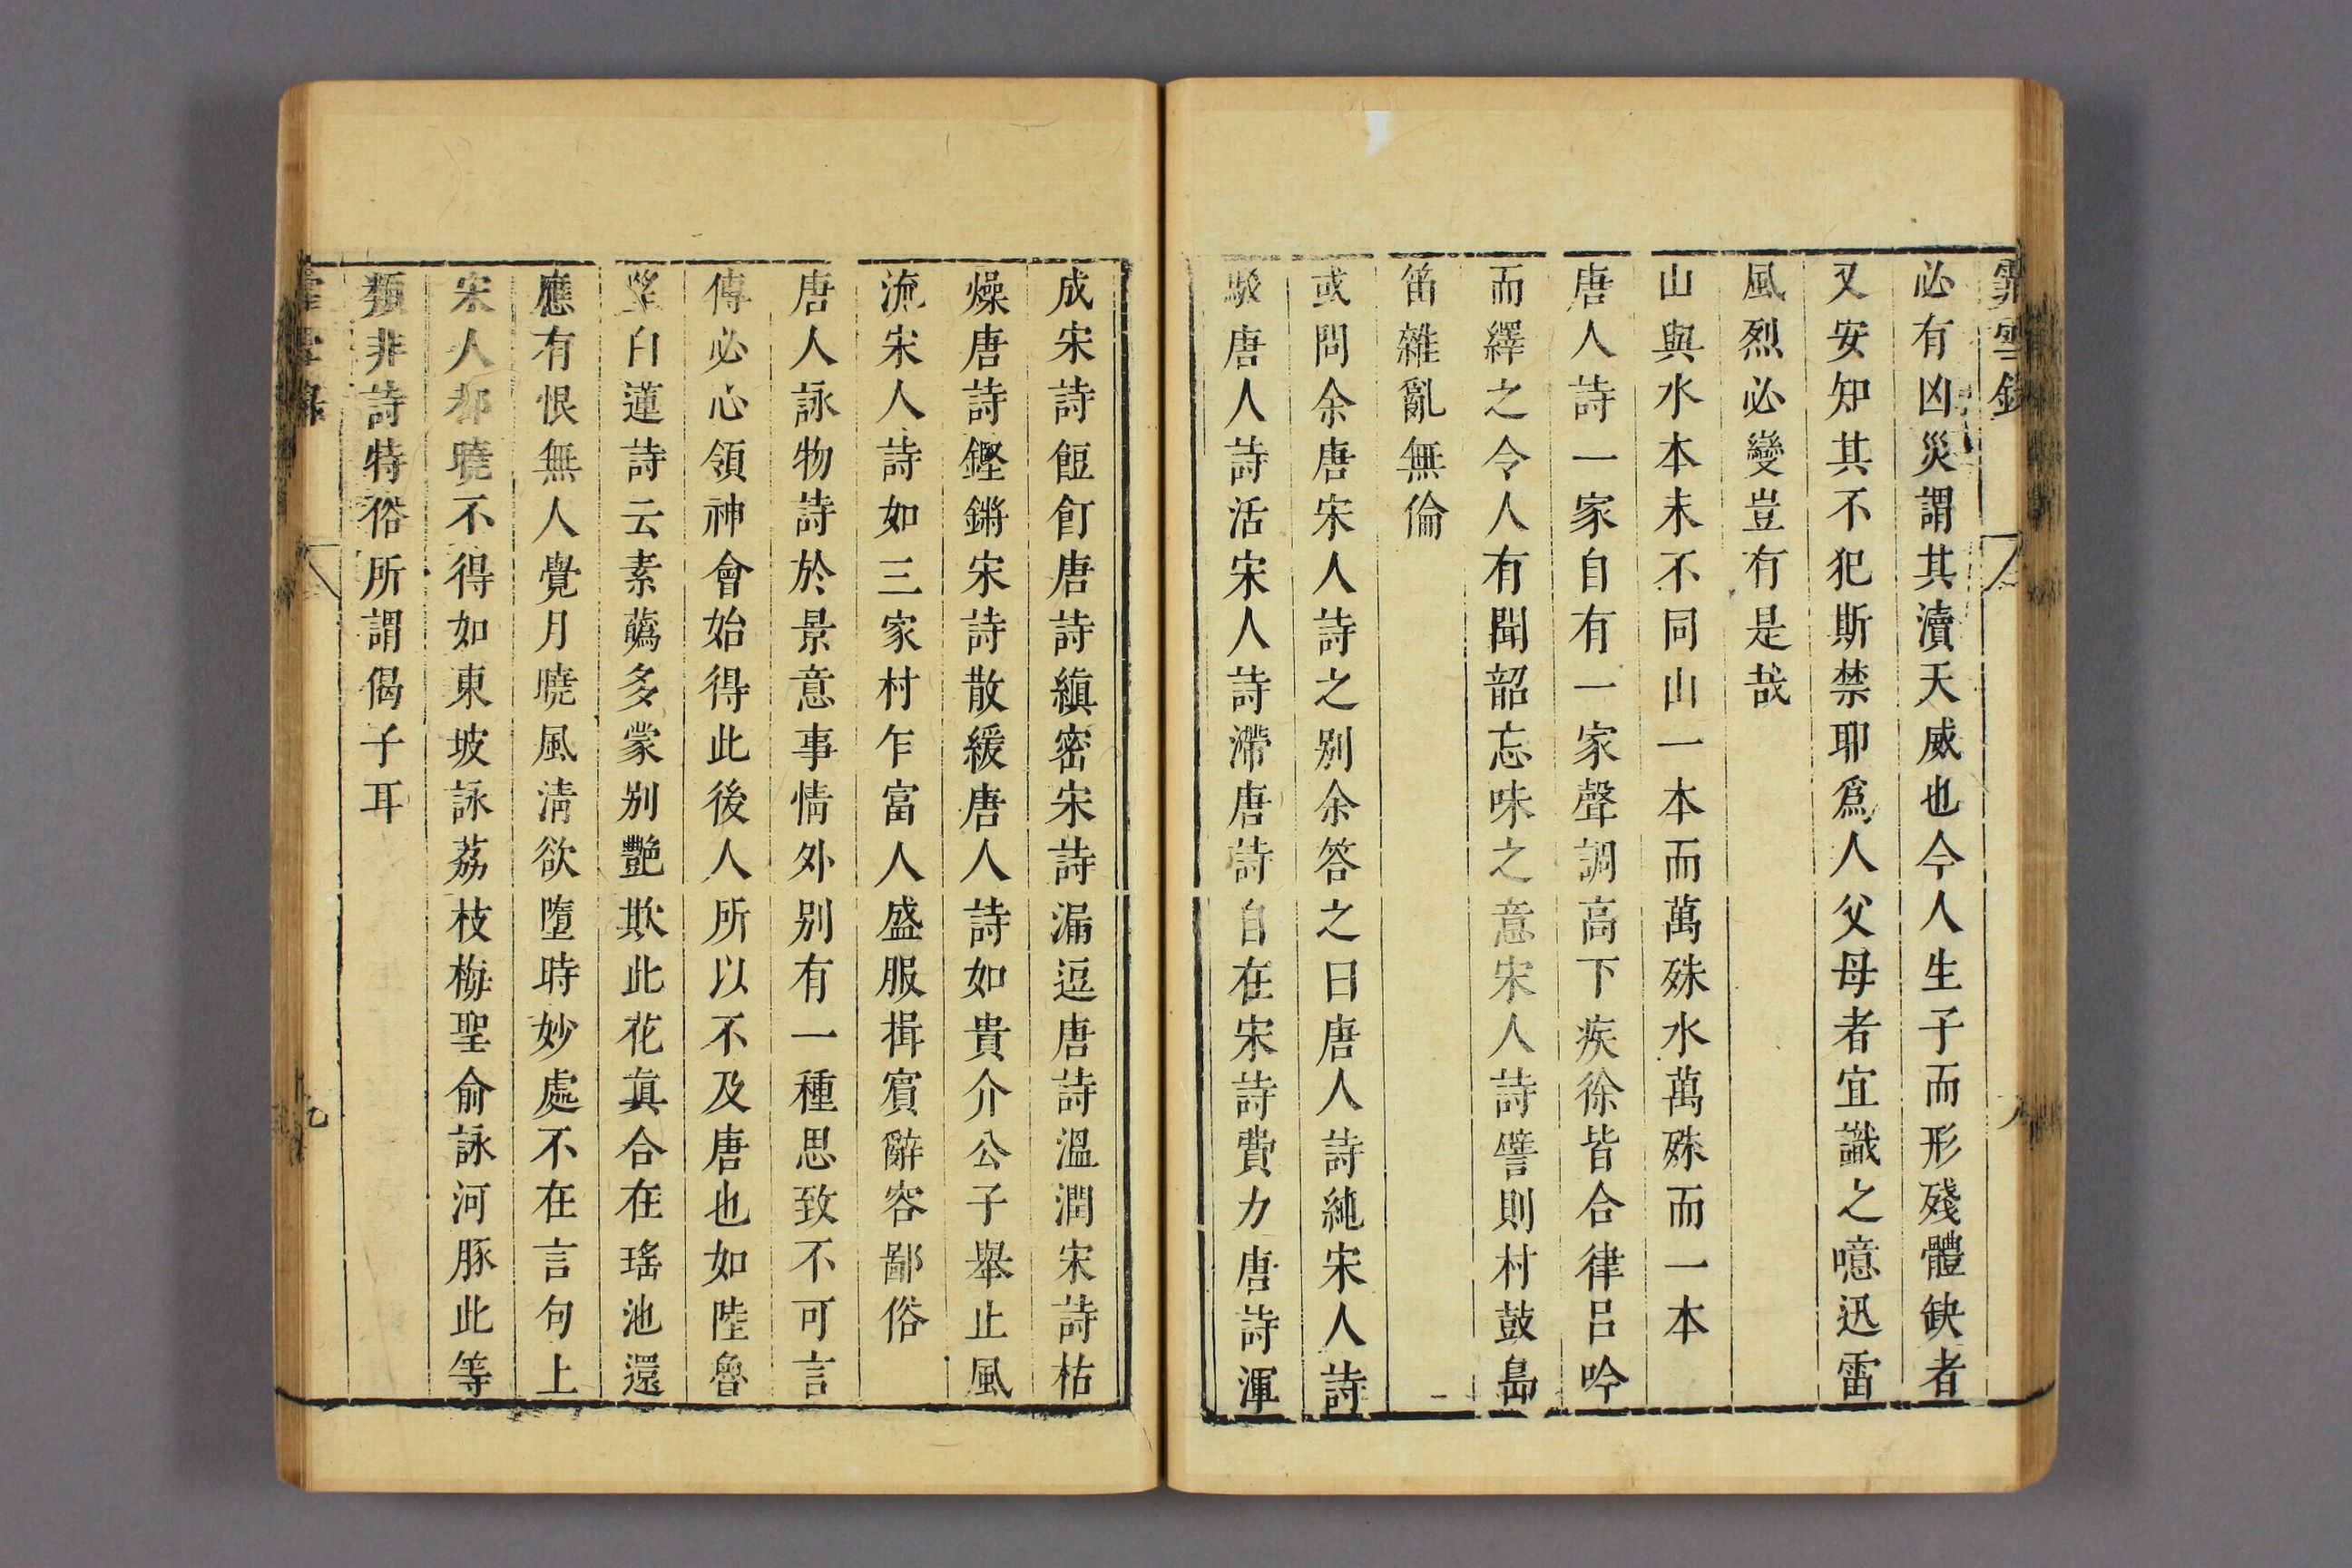 霏雪録
必有凶災謂其瀆天威也今人生子而形殘體缺者
又安知其不犯斯禁耶爲人父母者宜識之噫迅雷
風烈必變豈有是哉
山與水本末不同山一本而萬殊水萬殊而一本
唐人詩一家自有一家聲調高下疾徐皆合律呂吟
而繹之令人有聞韶忘味之意宋人詩譬則村鼓島
笛雜亂無倫
或問余唐宋人詩之别余答之曰唐人詩純宋人詩
駁唐人詩活宋人詩滯唐詩自在宋詩費力唐詩渾
成宋詩餖飣唐詩縝密宋詩漏逗唐詩溫潤宋詩枯
燥唐詩鏗鏘宋詩散緩唐人詩如貴介公子舉止風
流宋人詩如三家村乍富人盛服揖賓辭容鄙俗
唐人詠物詩於景意事情外别有一種思致不可言
傳必心領神會始得此後人所以不及唐也如陸魯
望白蓮詩云素蘤多蒙别艷欺此花真合在瑤池還
應有恨無人覺月曉風清欲墮時妙處不在言句上
宋人都曉不得如東坡詠荔枝梅聖俞詠河豚此等
類非詩特俗所謂偈子耳
九